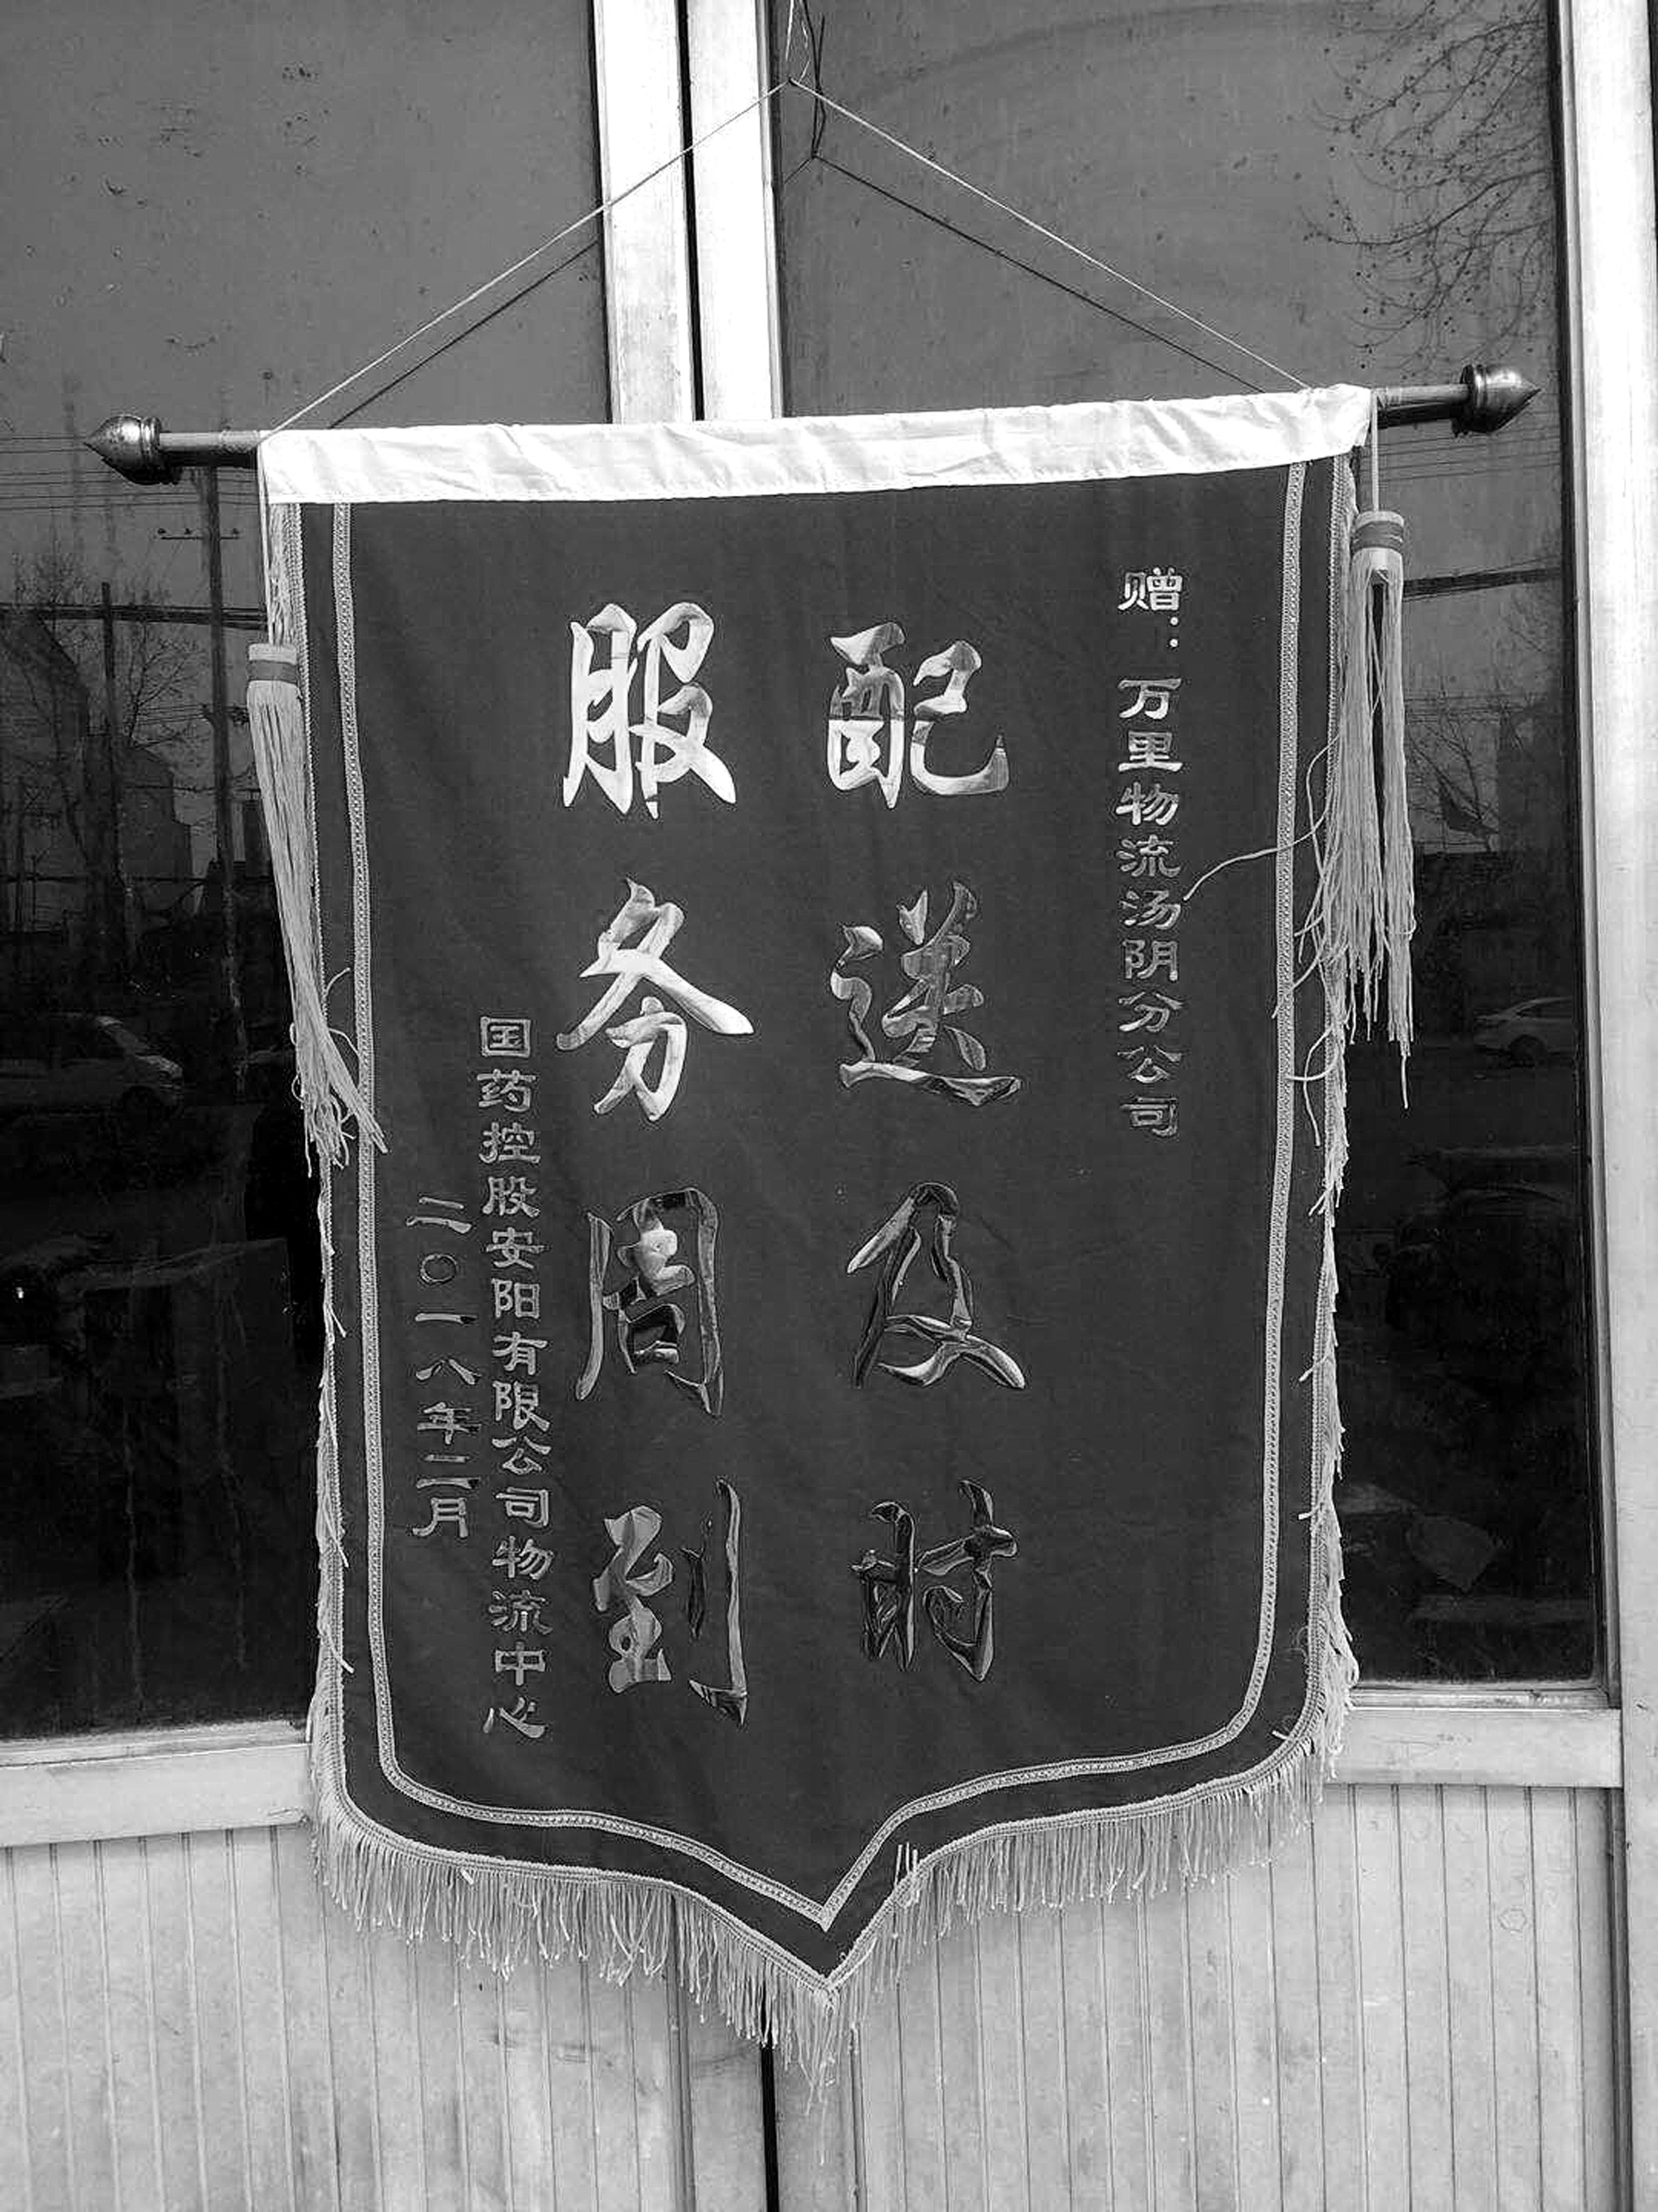 赠：万里物流汤阴分公司
配送及时
服务周到
国药控股安阳有限公司物流中心
二〇一八年二月